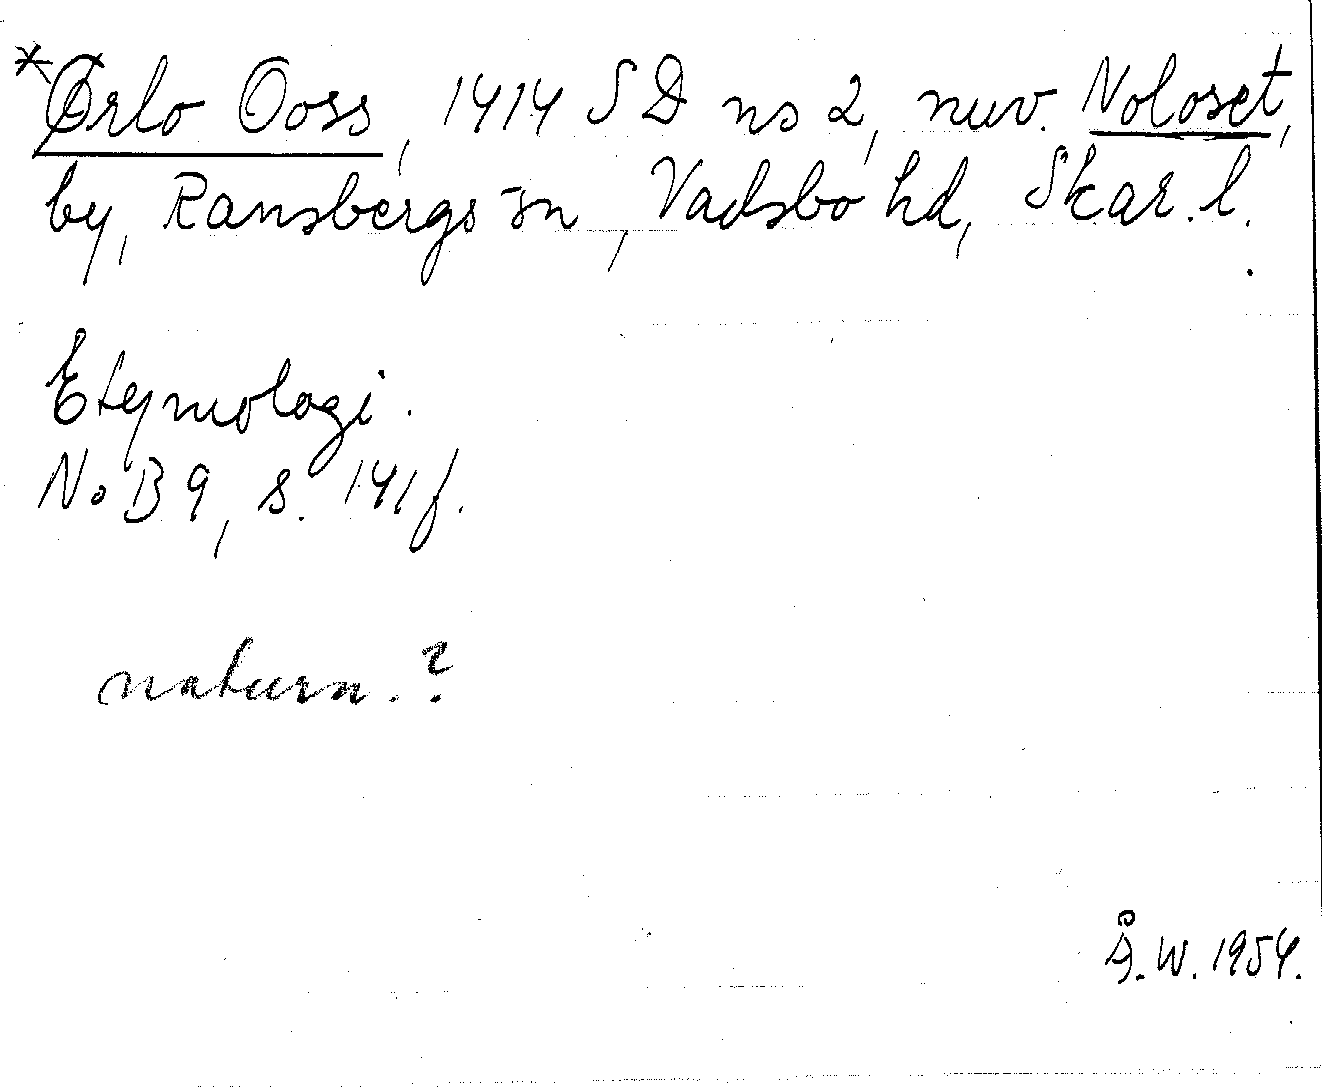 *Ørlo Ooss, 1414 SD ns 2, nuv. Noloset,
by, Ransbergs sn, Vadsbo hd, Skar. l.
Etymologi.
NoB 9, s. 141 f.
naturn.?
Å.W. 1954.